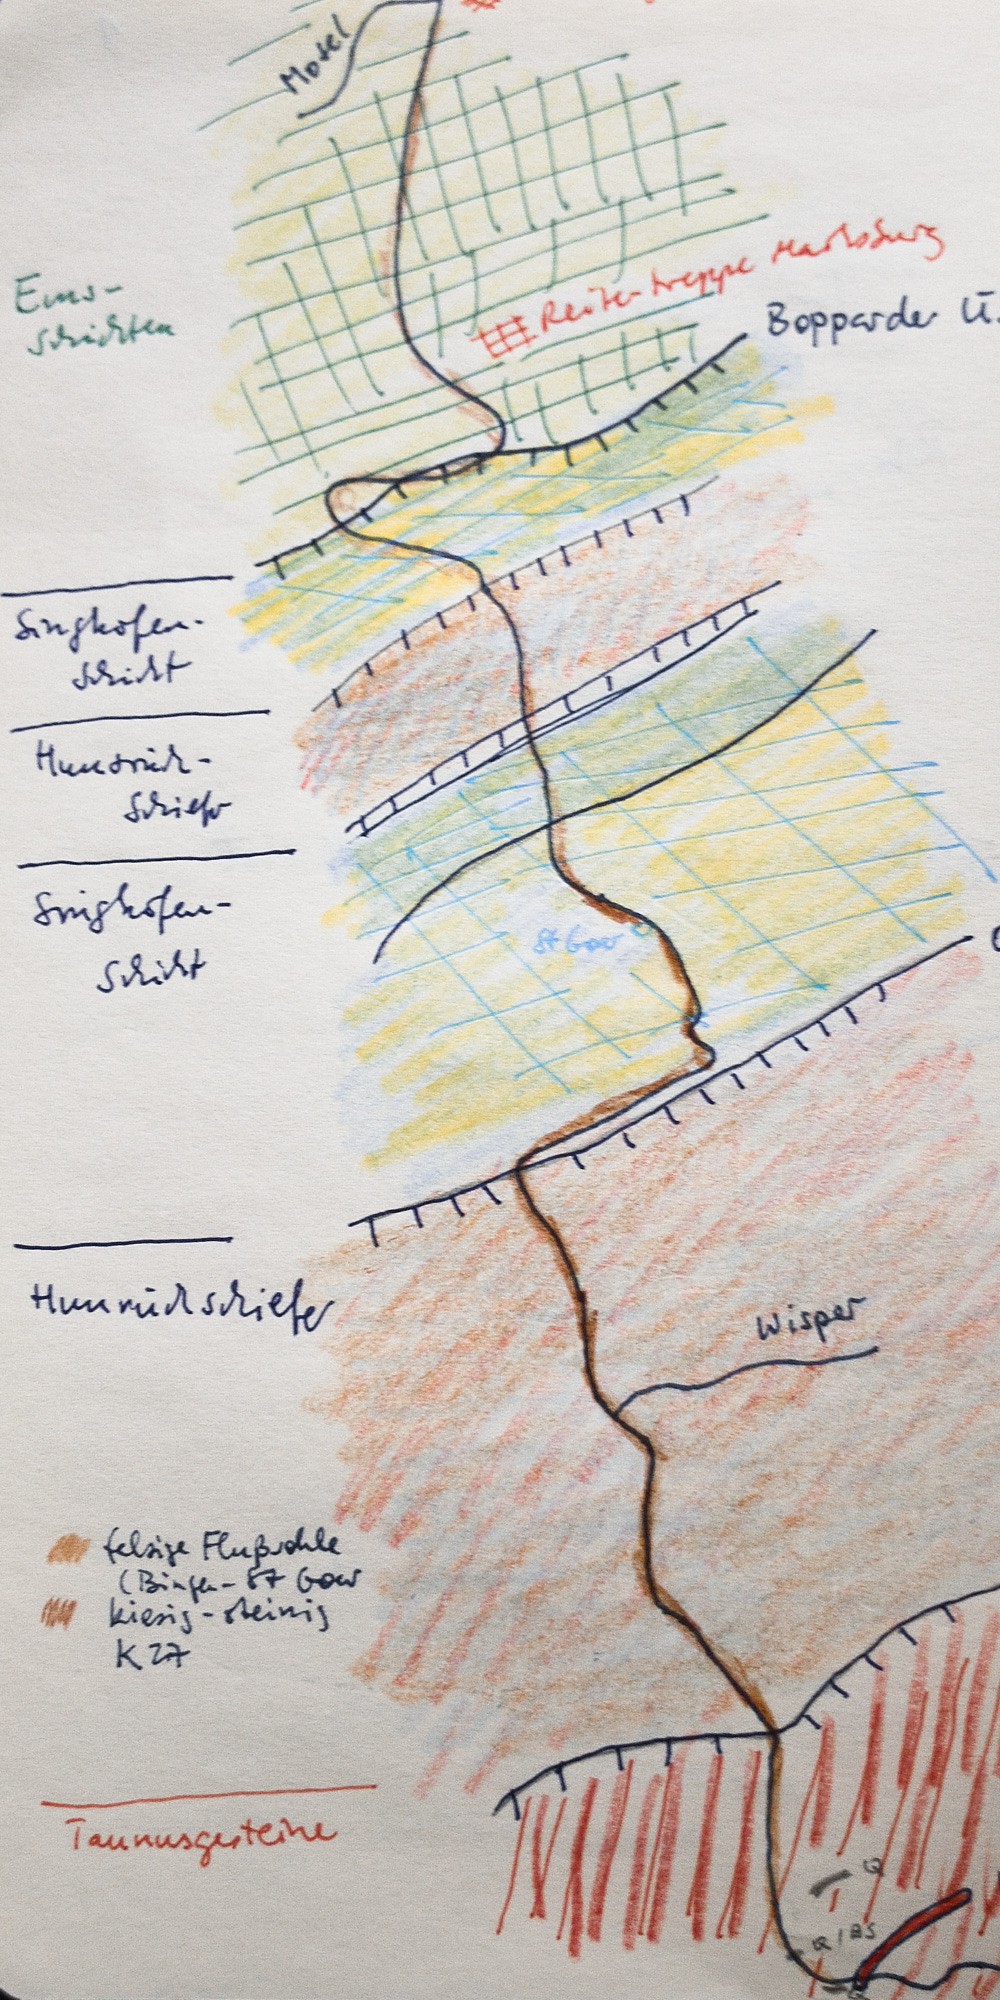 Mosel
Reitertreppe Marksburg
Bopparder Ü.
Ems-
schichten
Singhofen-
schicht
Hunsrück-
schiefer
Singhofen-
schicht
St Goar
Hunsrückschiefer
Wisper
felsige Flußsohle
(Bingen-St Goar
kiesig-steinig
K 27
Taunusgesteine
Q
Q / BS
Q